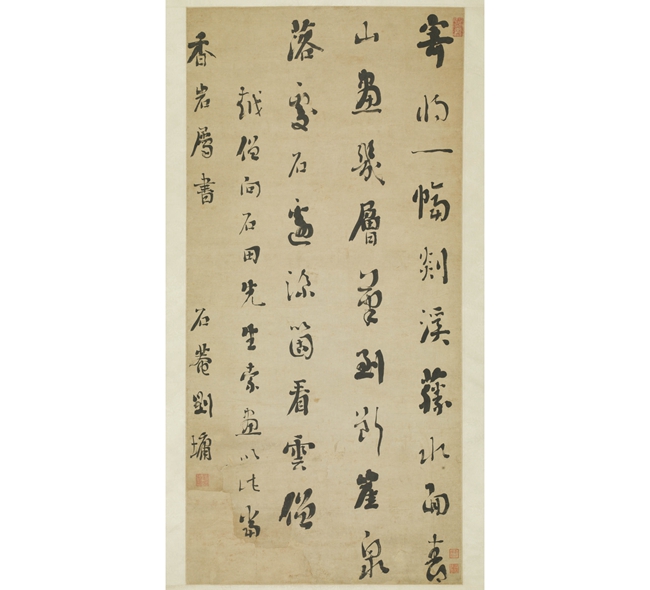 寄將一幅剡溪藤水面青
山畫幾層筆到斷崖泉
落處石邊添箇看雲僧
越僧向石田先生索畫以此
香岩屬書
石菴劉墉